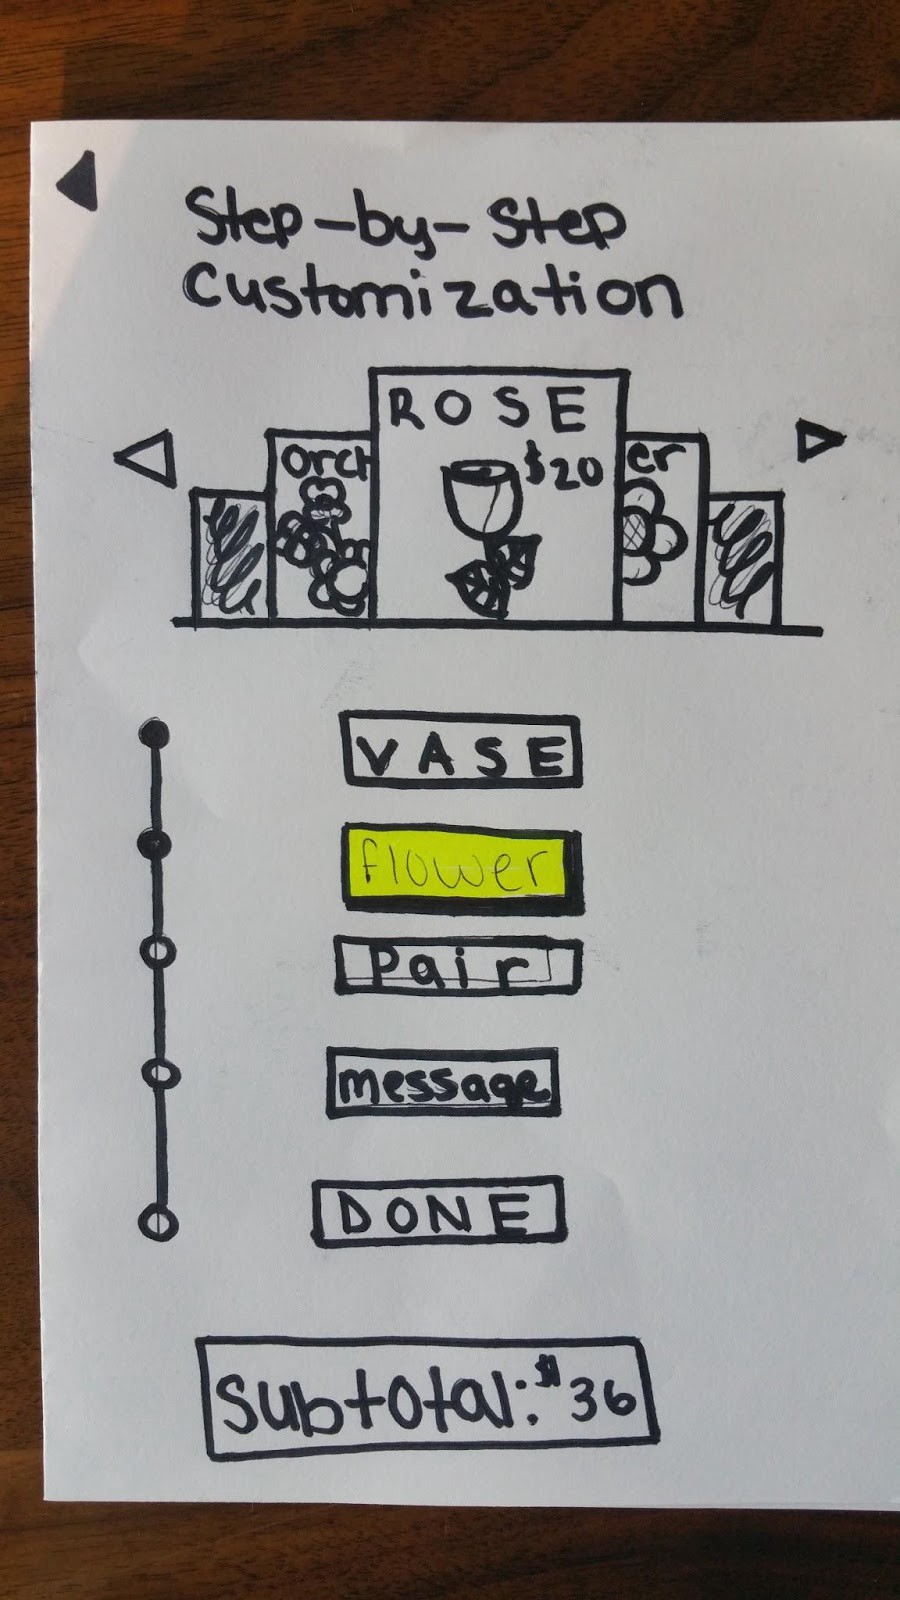 Step-by-Step
Customization
ROSE
$20
orch
er
VASE
flower
Pair
message
DONE
Subtotal: $36